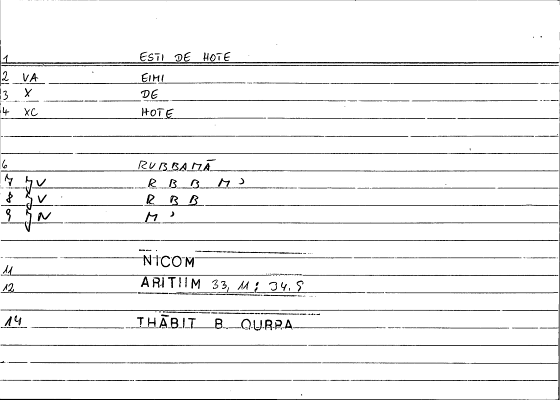 1 ESTI DE HOTE
2 VA EIMI
3 X DE
4 XC HOTE
6 RUBBAMĀ
7 JV R B B M ʾ
8 JV R B B
9 JN M ʾ
11 NICOM
12 ARITIIM 33, 11 ; 34.9
14 THĀBIT B. QURRA